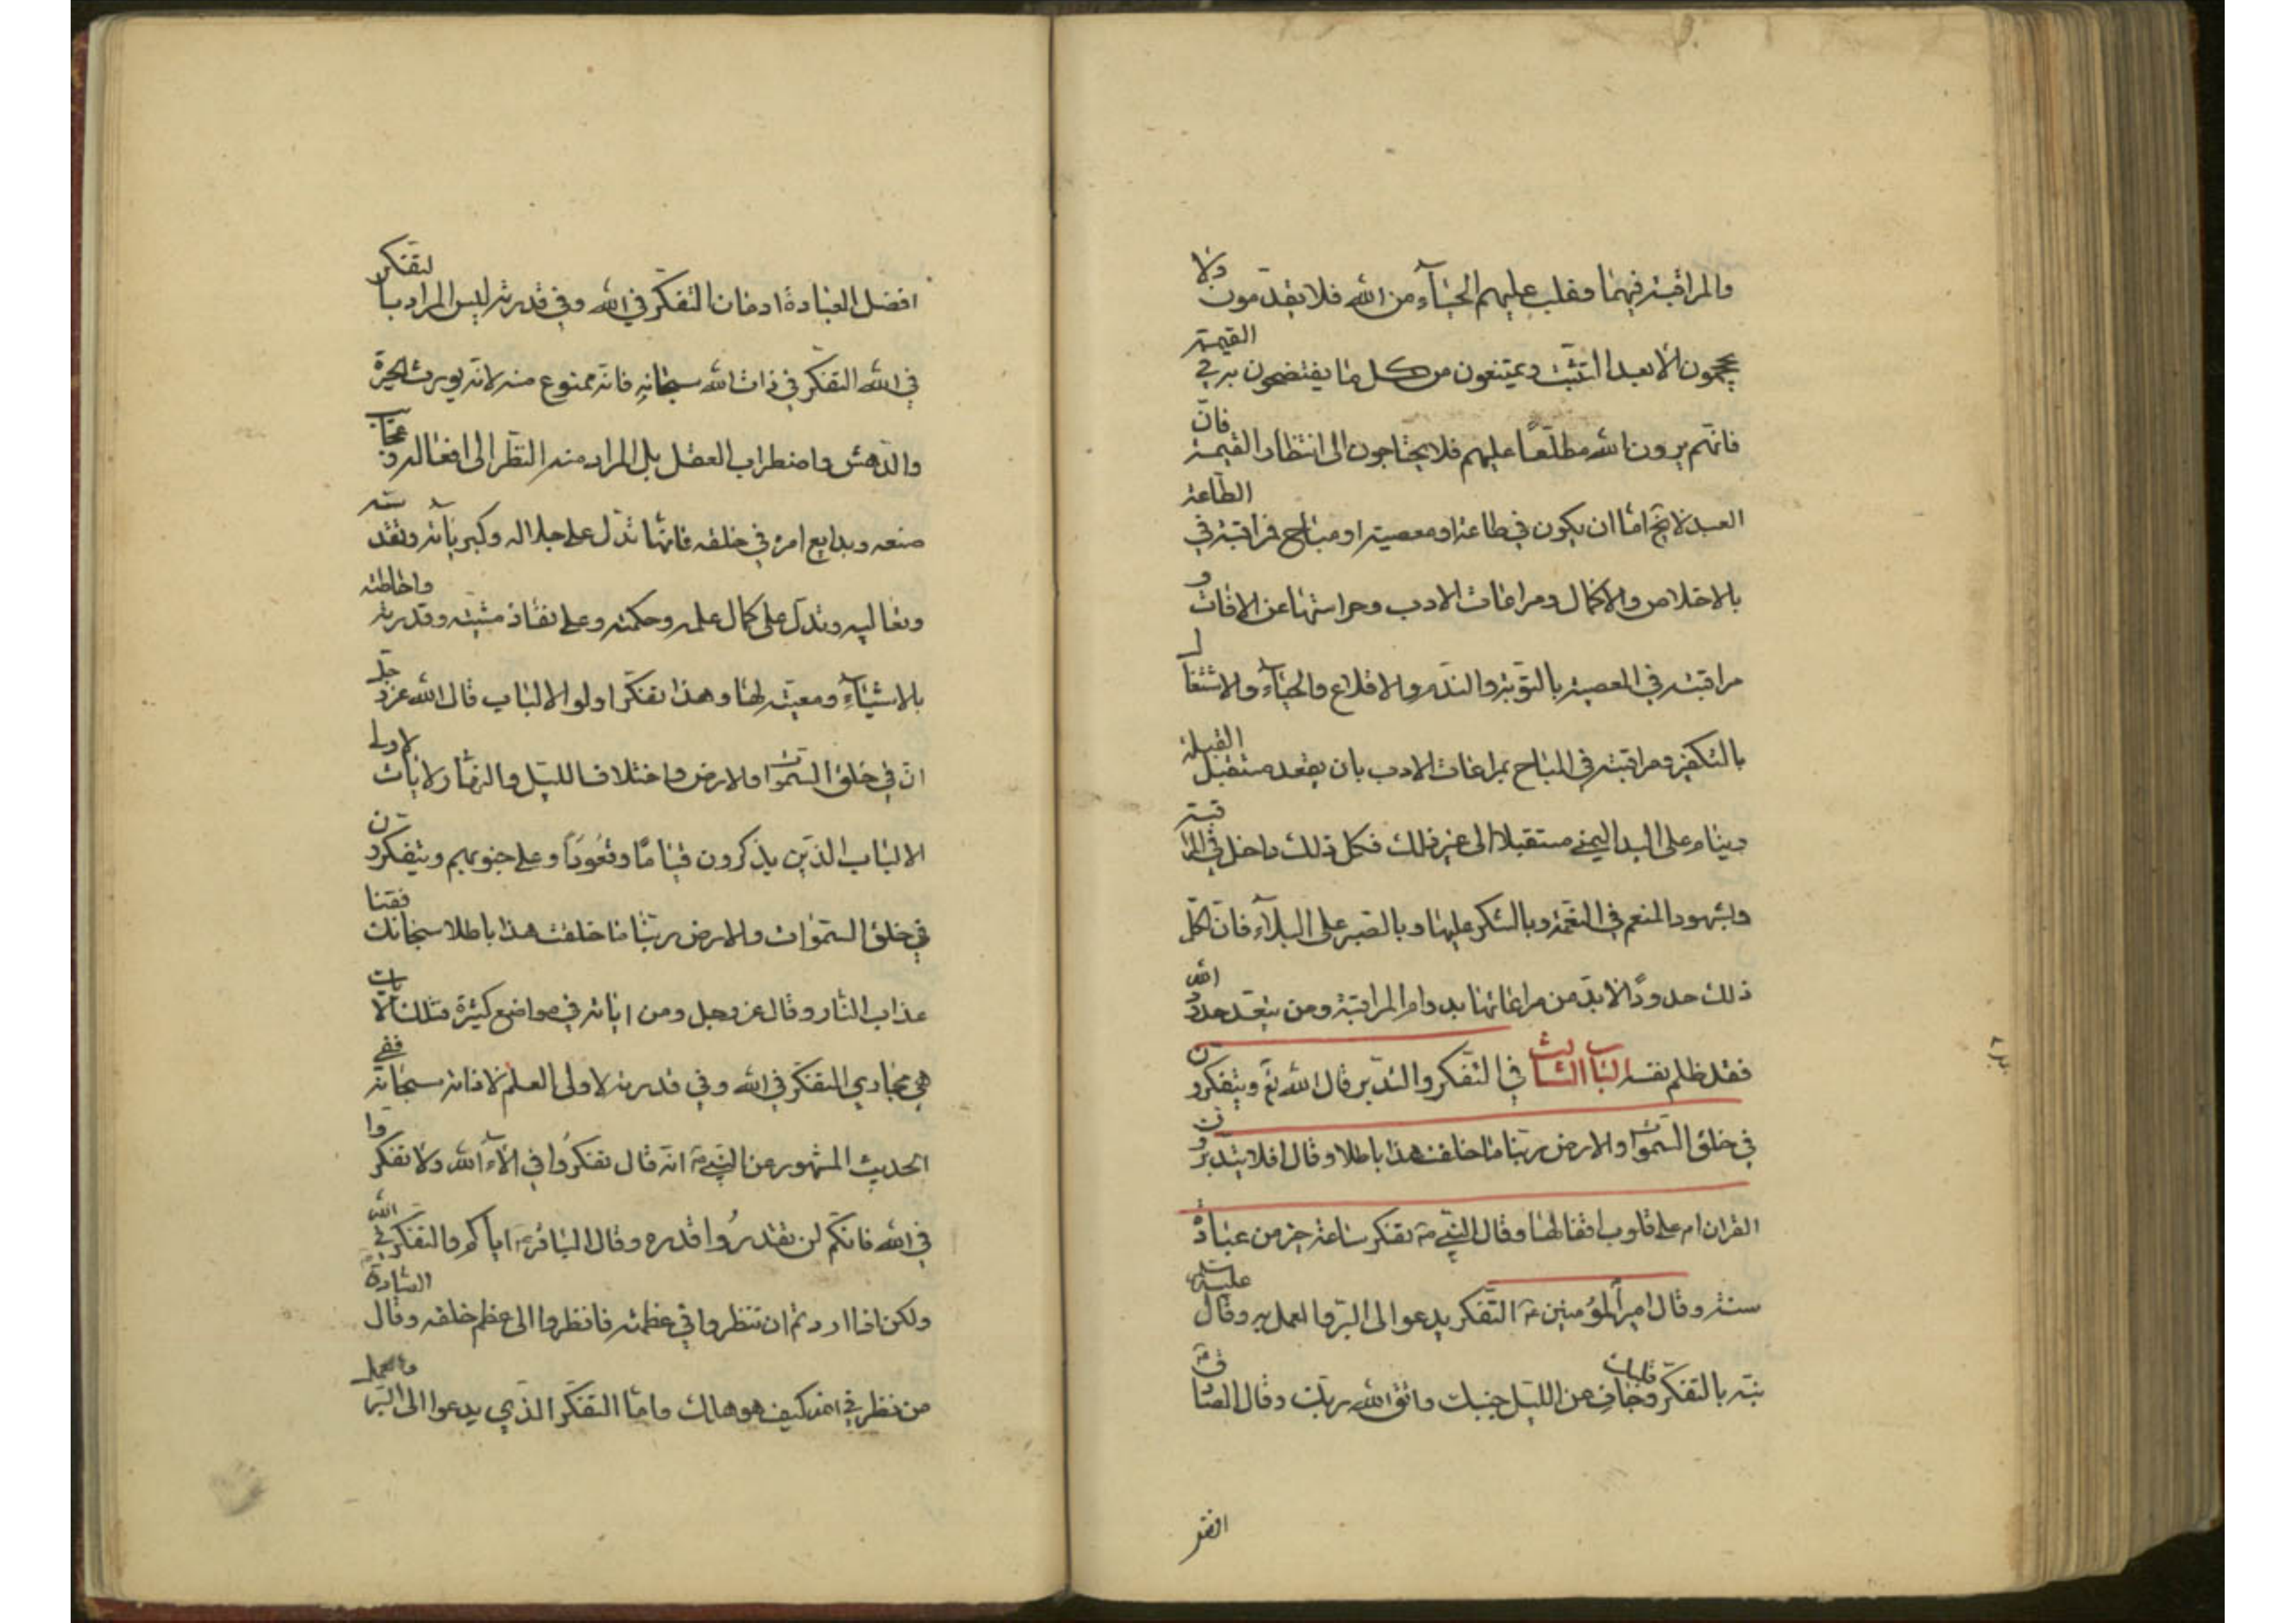 والمراقبة فيهما وغلب عليهم الحيآء من الله فلا يقدمون ولا
يحجمون الا بعد التثبت ويمتنعون من كل ما يفتضحون به في القيمة
فانهم يرون الله مطلعا عليهم فلا يحتاجون الى انتظار القيمة فان
العبد لا يخ اما ان يكون في طاعة او معصية او مباح فمراقبته في الطاعة
بالاخلاص والاكمال ومراعات الادب وحراستها عن الافات و
مراقبته في المعصية بالتوبة والندم والاقلاع والحيآء والاشتغال
بالتكفير ومراقبته في المباح بمراعات الادب بان يقعد مستقبل القبلة
وينام على اليد اليمنى مستقبلا الى غير ذلك فكل ذلك داخل في المراقبة
وبشهود المنعم في النعمة وبالشكر عليها وبالصبر على البلآء فان لكل
ذلك حدودا لا بد من مراعاتها بدوام المراقبة ومن يتعد حدود الله
فقد ظلم نفسه الباب الثالث في التفكر والتدبر قال الله تع ويتفكرون
في خلق السموات والارض ربنا ما خلقت هذا باطلا وقال افلا يتدبرون
القران ام على قلوب اقفالها وقال النبي ص تفكر ساعة خير من عبادة
سنة وقال امير المؤمنين ع التفكر يدعوا الى البر والعمل به وقال عليه السلم
نبه بالتفكر قلبك وجاف عن الليل جنبك واتق الله ربك وقال الصادق ع
افضل
افضل العبادة ادمان التفكر في الله وفي قدرته ليس المراد بالتفكر
في الله التفكر في ذات الله سبحانه فانه ممنوع منه لانه يورث الحيرة
والدهش واضطراب العقل بل المراد منه النظر الى افعاله وعجايب
صنعه وبدايع امره في خلقه فانها تدل على جلاله وكبريآئه وتقدسه
وتعاليه وتدل على كمال علمه وحكمته وعلى نفاذ مشيته وقدرته واحاطته
بالاشيآء ومعيته لها وهذا تفكر اولوا الالباب قال الله عز وجل
ان في خلق السموات والارض واختلاف الليل والنهار لايات لاولى
الالباب الذين يذكرون قياما وقعودا وعلى جنوبهم ويتفكرون
في خلق السموات والارض ربنا ما خلقت هذا باطلا سبحانك فقنا
عذاب النار وقال عز وجل ومن اياته في مواضع كثيرة فتلك الايات
هي مجاري التفكر في الله وفي قدرته لاولى العلم لا ذاته سبحانه ففي
الحديث المشهور عن النبي ص انه قال تفكروا في الآء الله ولا تفكروا
في الله فانكم لن تقدروا قدره وقال الباقر ع اياكم والتفكر في الله
ولكن اذا اردتم ان تنظروا في عظمته فانظروا الى عظم خلقه وقال الصادق ع
من نظر في الله كيف هو هلك واما التفكر الذي يدعوا الى البر والعمل